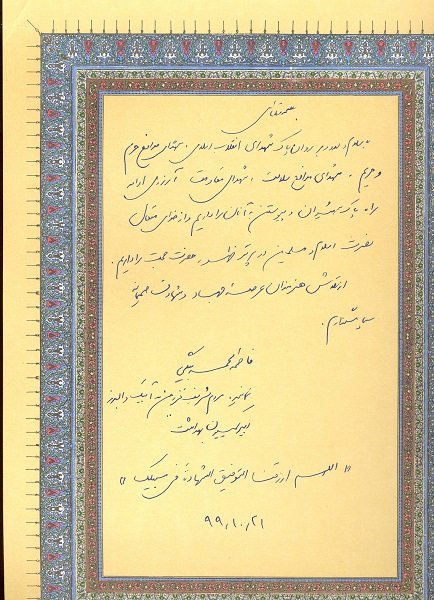 بسمه تعالی
با سلام و درود بر روان پاک شهدای انقلاب اسلامی، شهدای مدافع حرم
و حریم، شهدای مدافع سلامت، شهدای مقاومت آرزوی ادامه
راه پاک شهیدان و پیوستن به آنان را داریم و از خدای متعال
نصرت اسلام و مسلمین در پرتو ظهور حضرت حجت را داریم.
از تلاش هنرمندان عرصه جهاد و شهادت صمیمانه
سپاسگزارم.
فاطمه محمدبیگی
نماینده مردم شریف قزوین و آبیک و البرز
کمیسیون بهداشت
«اللهم ارزقنا التوفیق الشهادة فی سبیلک»
۹۹،۱۰،۲۱